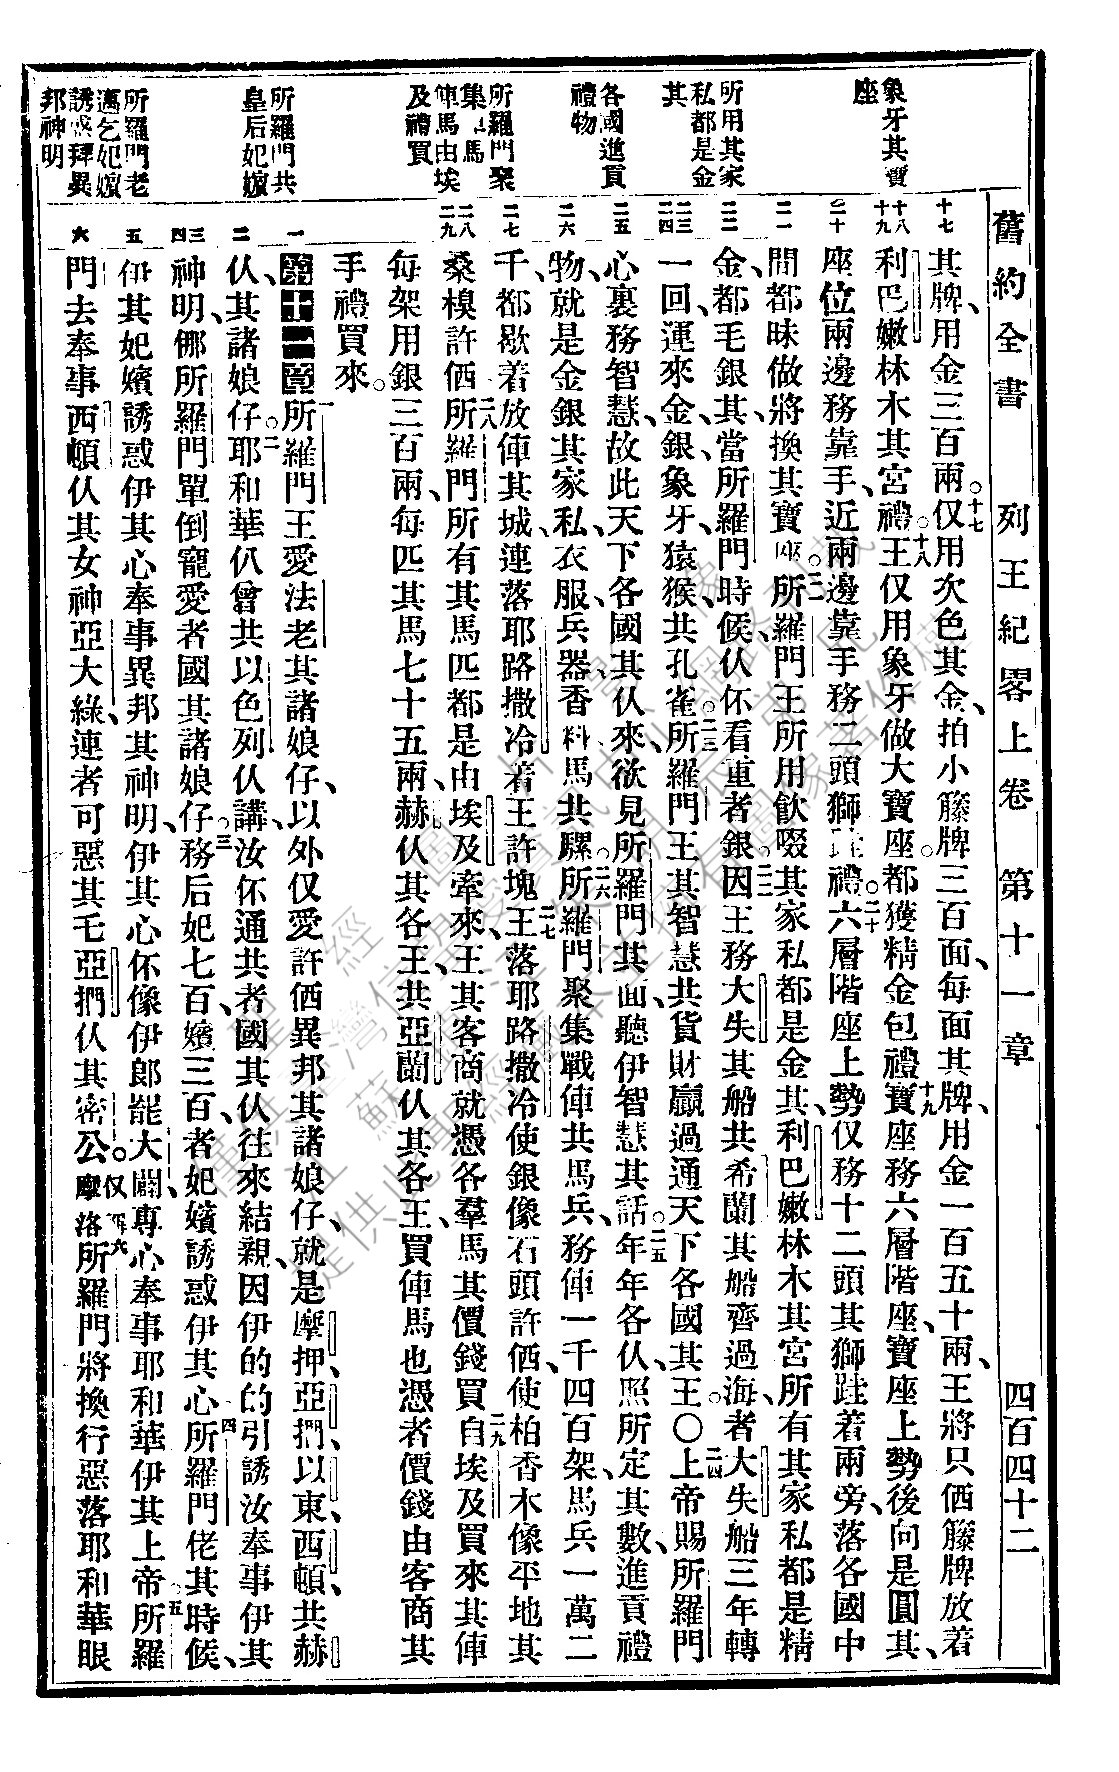 舊約全書 列王紀畧上卷 第十一章 四百四十二
象牙其寶座
所用其家私都是金其
各國進貢禮物
所羅門聚集俥馬俥馬由埃及禮買
所羅門共皇后妃嬪
所羅門老邁乞妃嬪誘惑拜異邦神明
十七
十八
十九
二十
二一
二二
二三
二四
二五
二六
二七
二八
二九
一
二
三
四
五
六
其牌、用金三百兩。十七仅用次色其金、拍小籐牌三百面、每面其牌、用金一百五十兩、王將只價籐牌放着
利巴嫩林木其宮禮。十八王仅用象牙做大寶座。都獲精金包禮。十九寶座務六層階座、寶座上勢後向是圓其、
座位兩邊務靠手、近兩邊靠手務二頭獅跬禮。二十六層階座上勢、仅務十二頭其獅跬着兩旁、落各國中
間都昧做將換其寶座。二一所羅門王所用飲啜其家私都是金其、利巴嫩林木其宮所有其家私都是精
金、都毛銀其、當所羅門時候、仈伓看重者銀。二二因王務大失其船共希蘭其船齊過海、者大失船三年轉
一回、運來金銀象牙、猿猴、共孔雀。二三所羅門王其智慧共貨財贏過通天下各國其王。〇二四上帝賜所羅門
心裏務智慧、故此天下各國其仈來、欲見所羅門其面、聽伊智慧其話。二五年年各仈、照所定其數、進貢禮
物、就是金銀其家私、衣服、兵器香料、馬共騾。二六所羅門聚集戰俥共馬兵、務俥一千四百架、馬兵一萬二
千、都歇着放俥其城、連落耶路撒冷着王許塊。二七王落耶路撒冷使銀像石頭許価、使柏香木像平地其
桑模許価。二八所羅門所有其馬匹都是由埃及牽來、王其客商就憑各羣馬其價錢買。二九自埃及買來其俥
每架用銀三百兩、每匹其馬七十五兩、赫仈其各王、共亞蘭仈其各王、買俥馬也憑者價錢由客商其
手禮買來。
第十一章 一所羅門王愛法老其諸娘仔、以外仅愛許価異邦其諸娘仔、就是摩押、亞捫、以東、西頓、共赫
仈、其諸娘仔。二耶和華仈曾共以色列仈講、汝伓通共者國其仈往來結親、因伊的的引誘汝奉事伊其
神明、㑚所羅門單倒寵愛者國其諸娘仔。三務后妃七百、嬪三百、者妃嬪誘惑伊其心。四所羅門佬其時候、
伊其妃嬪誘惑伊其心奉事異邦其神明、伊其心伓像伊郎罷大闢、專心奉事耶和華伊其上帝。五所羅
門去奉事西頓仈其女神亞大綠、連者可惡其乇亞捫仈其密公。六所羅門將換行惡落耶和華眼